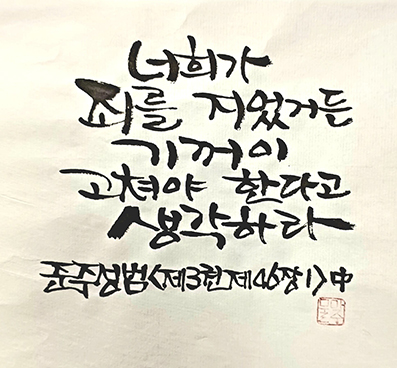 너희가
죄를 지었거든
기꺼이
고쳐야 한다고
생각하라
준주성범<제3권제46장1>中